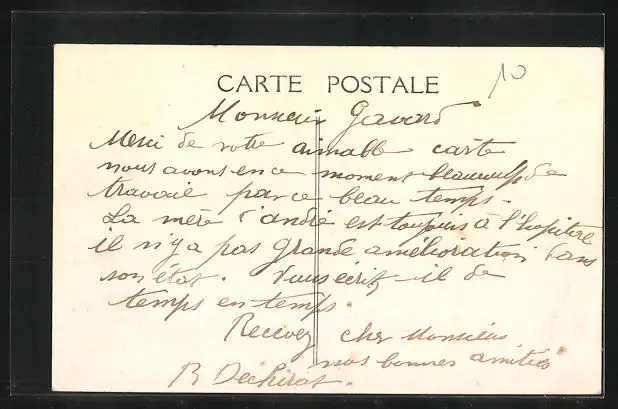 10
CARTE POSTALE
Monsieur Gavard
Merci de votre aimable carte
nous avons en ce moment beaucoup de
travail par ce beau temps -
La mère d'andré est toujours à l'hopital
il n'y a pas grande amélioration dans
son état. Vous écrit-il de
temps en temps.
Recevez cher Monsieur
nos bonnes amitiés
R